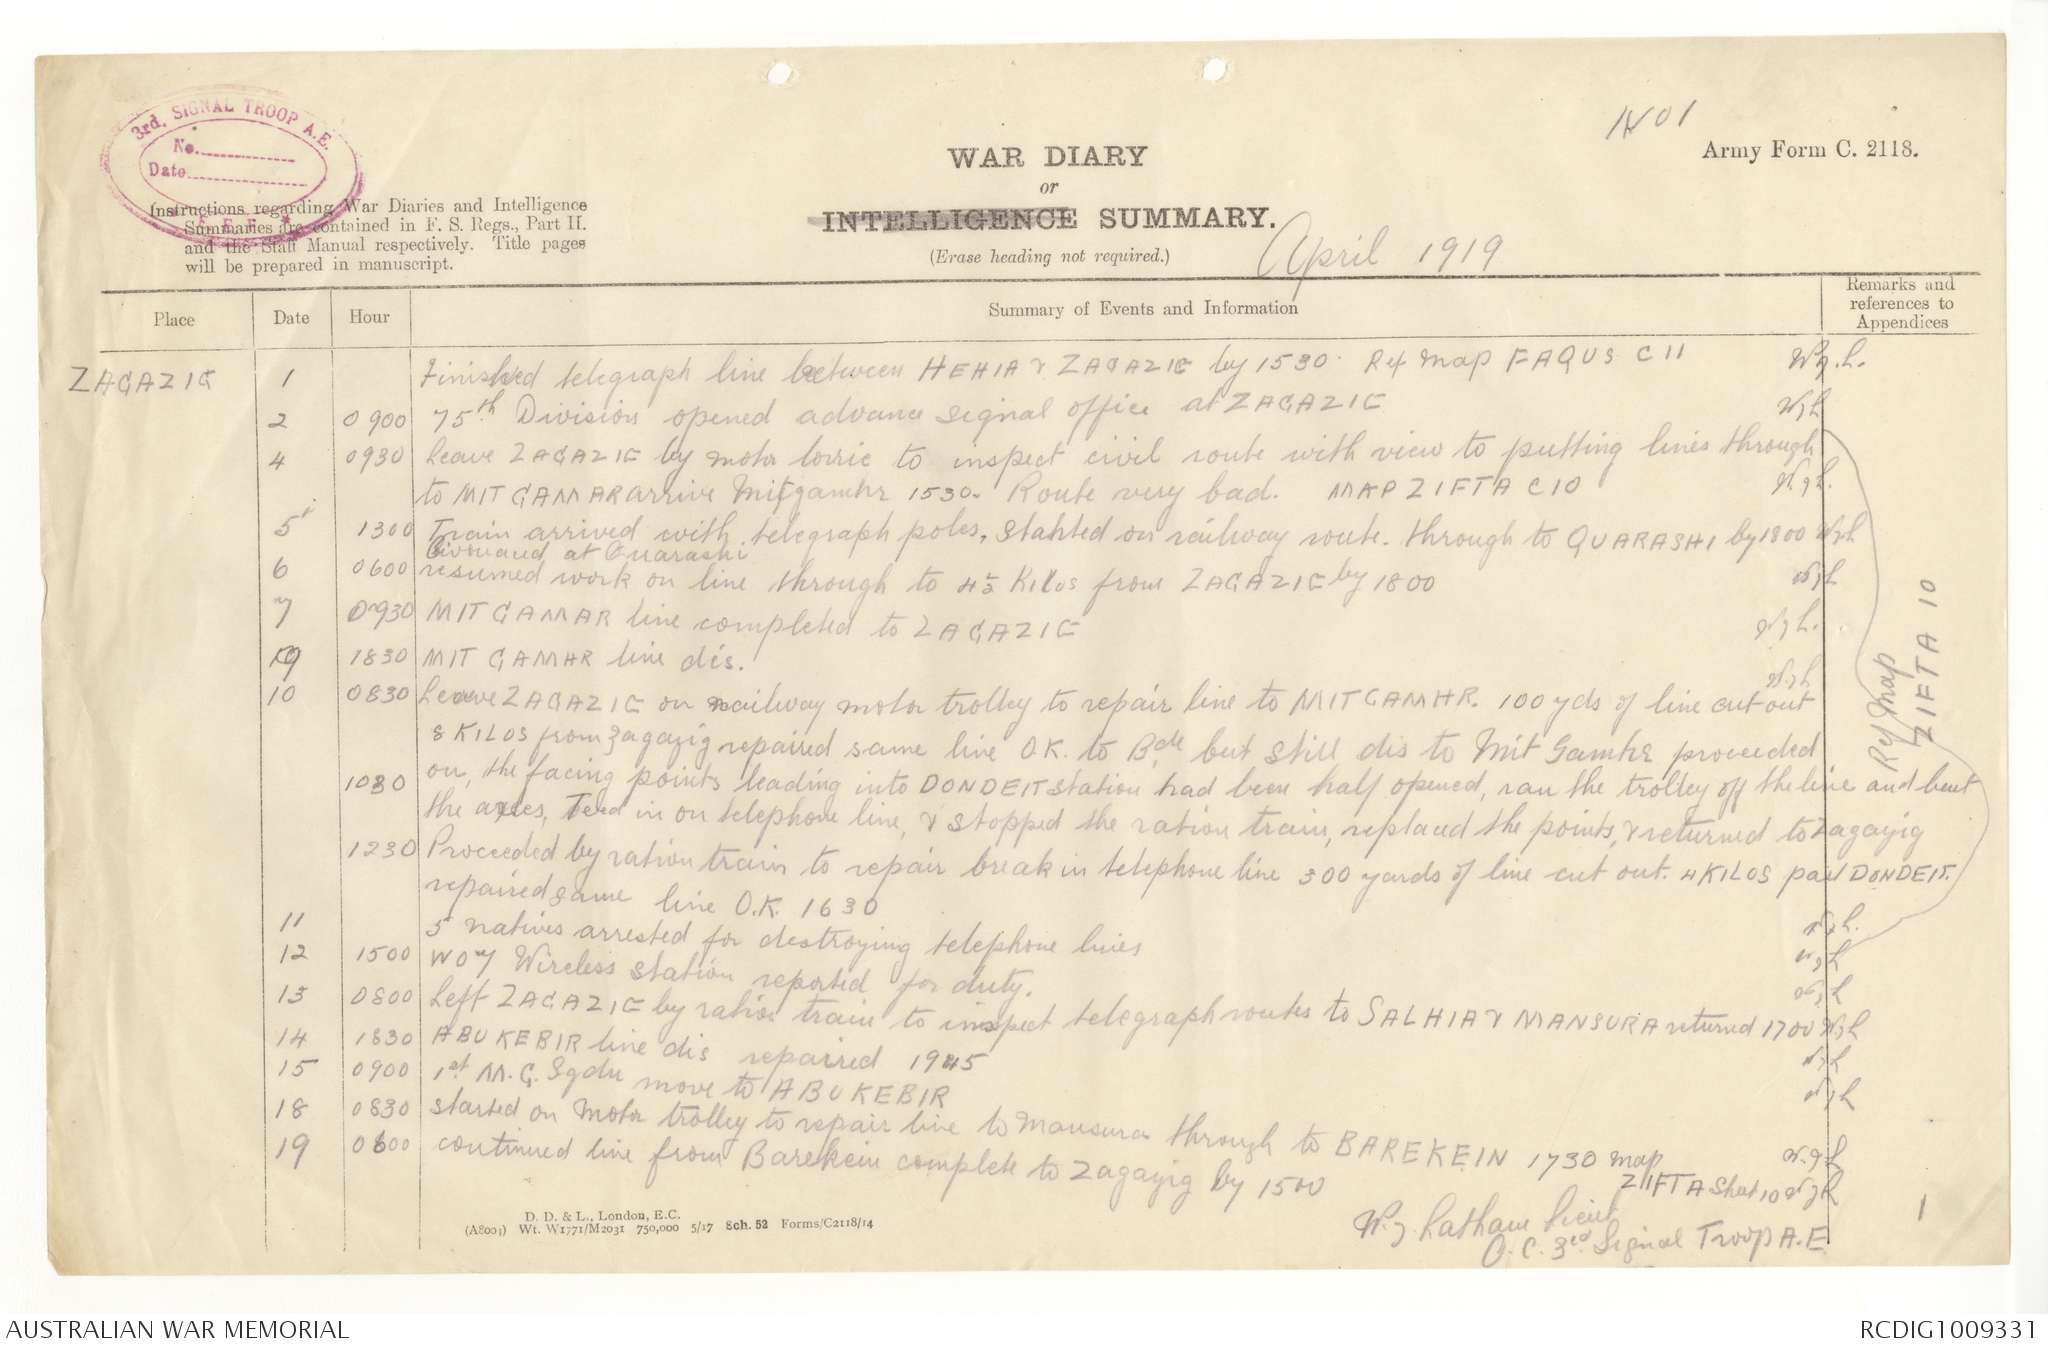 3rd. SIGNAL TROOP A.E.
No.
Date
E.E.F.
Instructions regarding War Diaries and Intelligence
Summaries are contained in F. S. Regs., Part II.
and the Staff Manual respectively. Title pages
will be prepared in manuscript.
WAR DIARY
or
INTELLIGENCE SUMMARY.
(Erase heading not required.)
April 1919
Army Form C. 2118.
Place Date Hour Summary of Events and Information Remarks and references to Appendices
ZAGAZIG 1 Finished telegraph line between HEHIA & ZAGAZIG by 1530. Ref Map FAQUS C 11 W.J.L.
2 0900 75th Division opened advance signal office at ZAGAZIG WJL
4 0930 Leave ZAGAZIG by motor lorrie to inspect civil route with view to putting lines through
to MIT GAMAR arrive Mit gamhr 1530. Route very bad. MAP ZIFTA C10 W.J.L.
5 1300 Train arrived with telegraph poles, started on railway route. through to QUARASHI by 1800 WJL
Bivouaced at Quarashi
6 0600 resumed work on line through to 45 Kilos from ZAGAZIG by 1800 WJL
7 0930 MIT GAMAR line completed to ZAGAZIG WJL.
9 1830 MIT GAMHR line dis. WJL
10 0830 Leave ZAGAZIG on railway motor trolley to repair line to MIT GAMHR. 100 yds of line cut out
8 KILOS from Zagazig repaired same line O.K. to Bde but still dis to Mit Gamhr proceeded
1030 on, the facing points leading into DONDEIT station had been half opened, ran the trolley off the line and bent
the axles, Teed in on telephone line, & stopped the ration train, replaced the points, & returned to Zagazig
1230 Proceeded by ration train to repair break in telephone line 300 yards of line cut out. 4 KILOS past DONDEIT.
repaired same line O.K. 1630
11 5 natives arrested for destroying telephone lines WJL.
12 1500 WO7 Wireless station reported for duty. WJL
13 0800 Left ZAGAZIG by ration train to inspect telegraph routes to SALHIA & MANSURA returned 1700 WJL
14 1830 ABU KEBIR line dis repaired 1945 WJL
15 0900 1st M.G. Sqdn move to ABU KEBIR WJL
18 0830 started on Motor trolley to repair line to Mansura through to BAREKEIN 1730 Map W.J.L
19 0600 continued line from Barekein complete to Zagazig by 1500 ZIFTA Sheet 10 WJL
Ref Map
ZIFTA 10
W.J. Latham Lieut
O.C. 3rd Signal Troop A.E.
1
D. D. & L., London, E.C.
(A8001) Wt. W1771/M2031 750,000 5/17 Sch. 52 Forms/C2118/14
AUSTRALIAN WAR MEMORIAL
RCDIG1009331